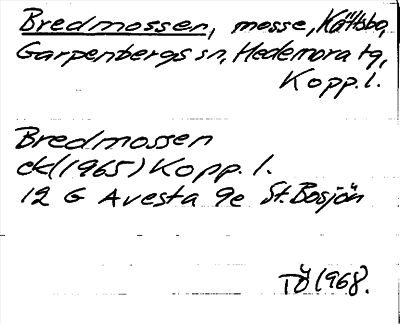 Bredmossen, mosse, Kättsbo,
Garpenbergs sn, Hedemora tg,
Kopp. l.
Bredmossen
ek (1965) Kopp. l.
12 G Avesta 9e St. Bosjön
TÖ 1968.